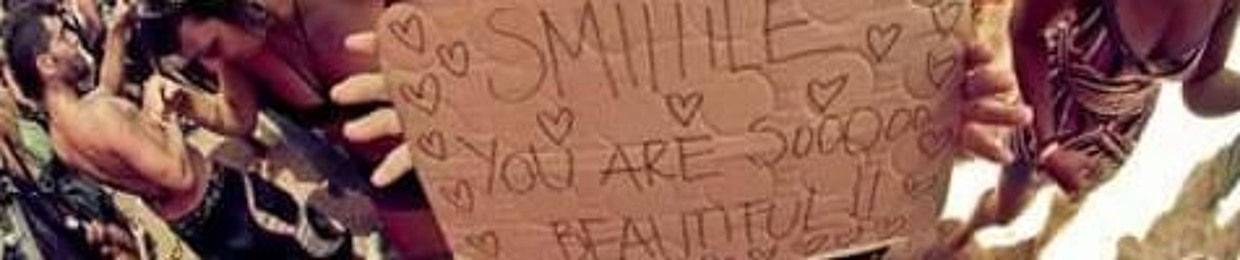 SMIIIILE
YOU ARE SOOOOO
BEAUTIFUL!!